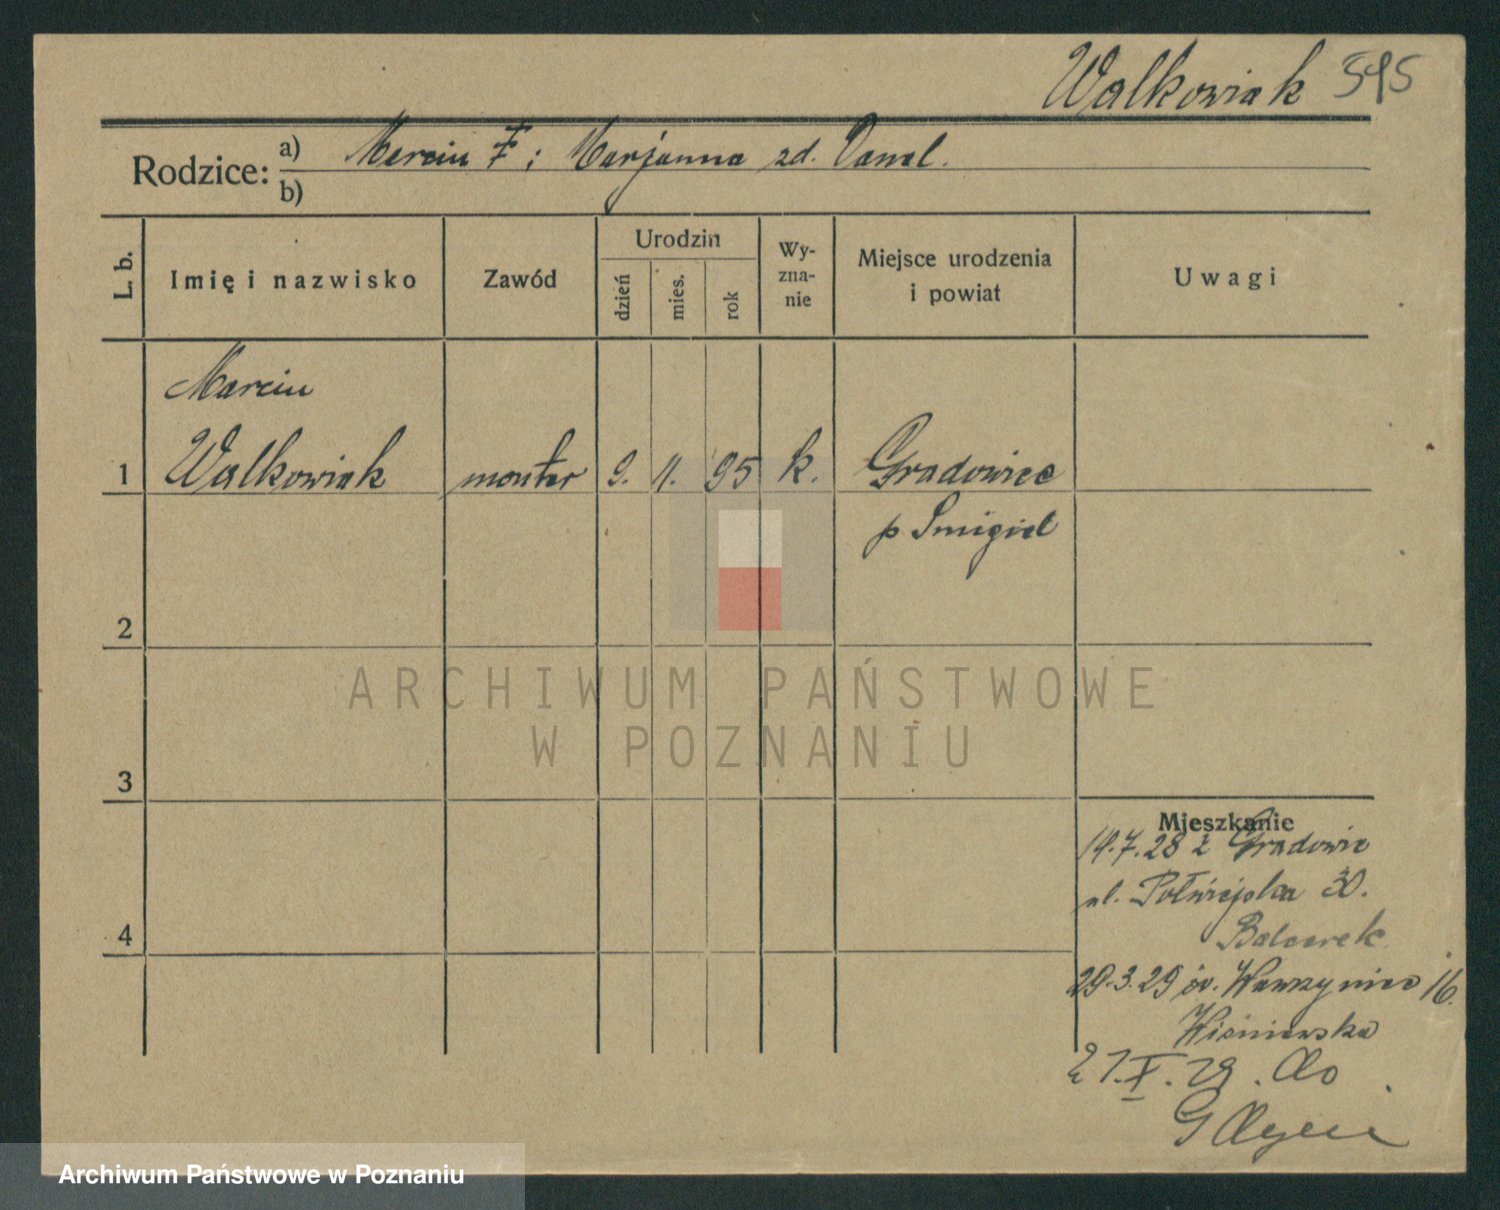 Walkowiak 595
Rodzice: a) Marcin i Marjanna zd.
b)
L. b.
Imię i nazwisko
Zawód
Urodzin
dzień
mies.
rok
Wy-
zna-
nie
Miejsce urodzenia
i powiat
Uwagi
Marcin
1 Walkowiak monter 9. 11. 95 k. Gradowiec
p Smigiel
2
3
4
Mieszkanie
14.7.28 z Gradowic
ul. Półwiejska 30.
29.3.29 św. Wawrzyniec 16.
Wiśniewska
21.X.29. do
ARCHIWUM PAŃSTWOWE
W POZNANIU
Archiwum Państwowe w Poznaniu